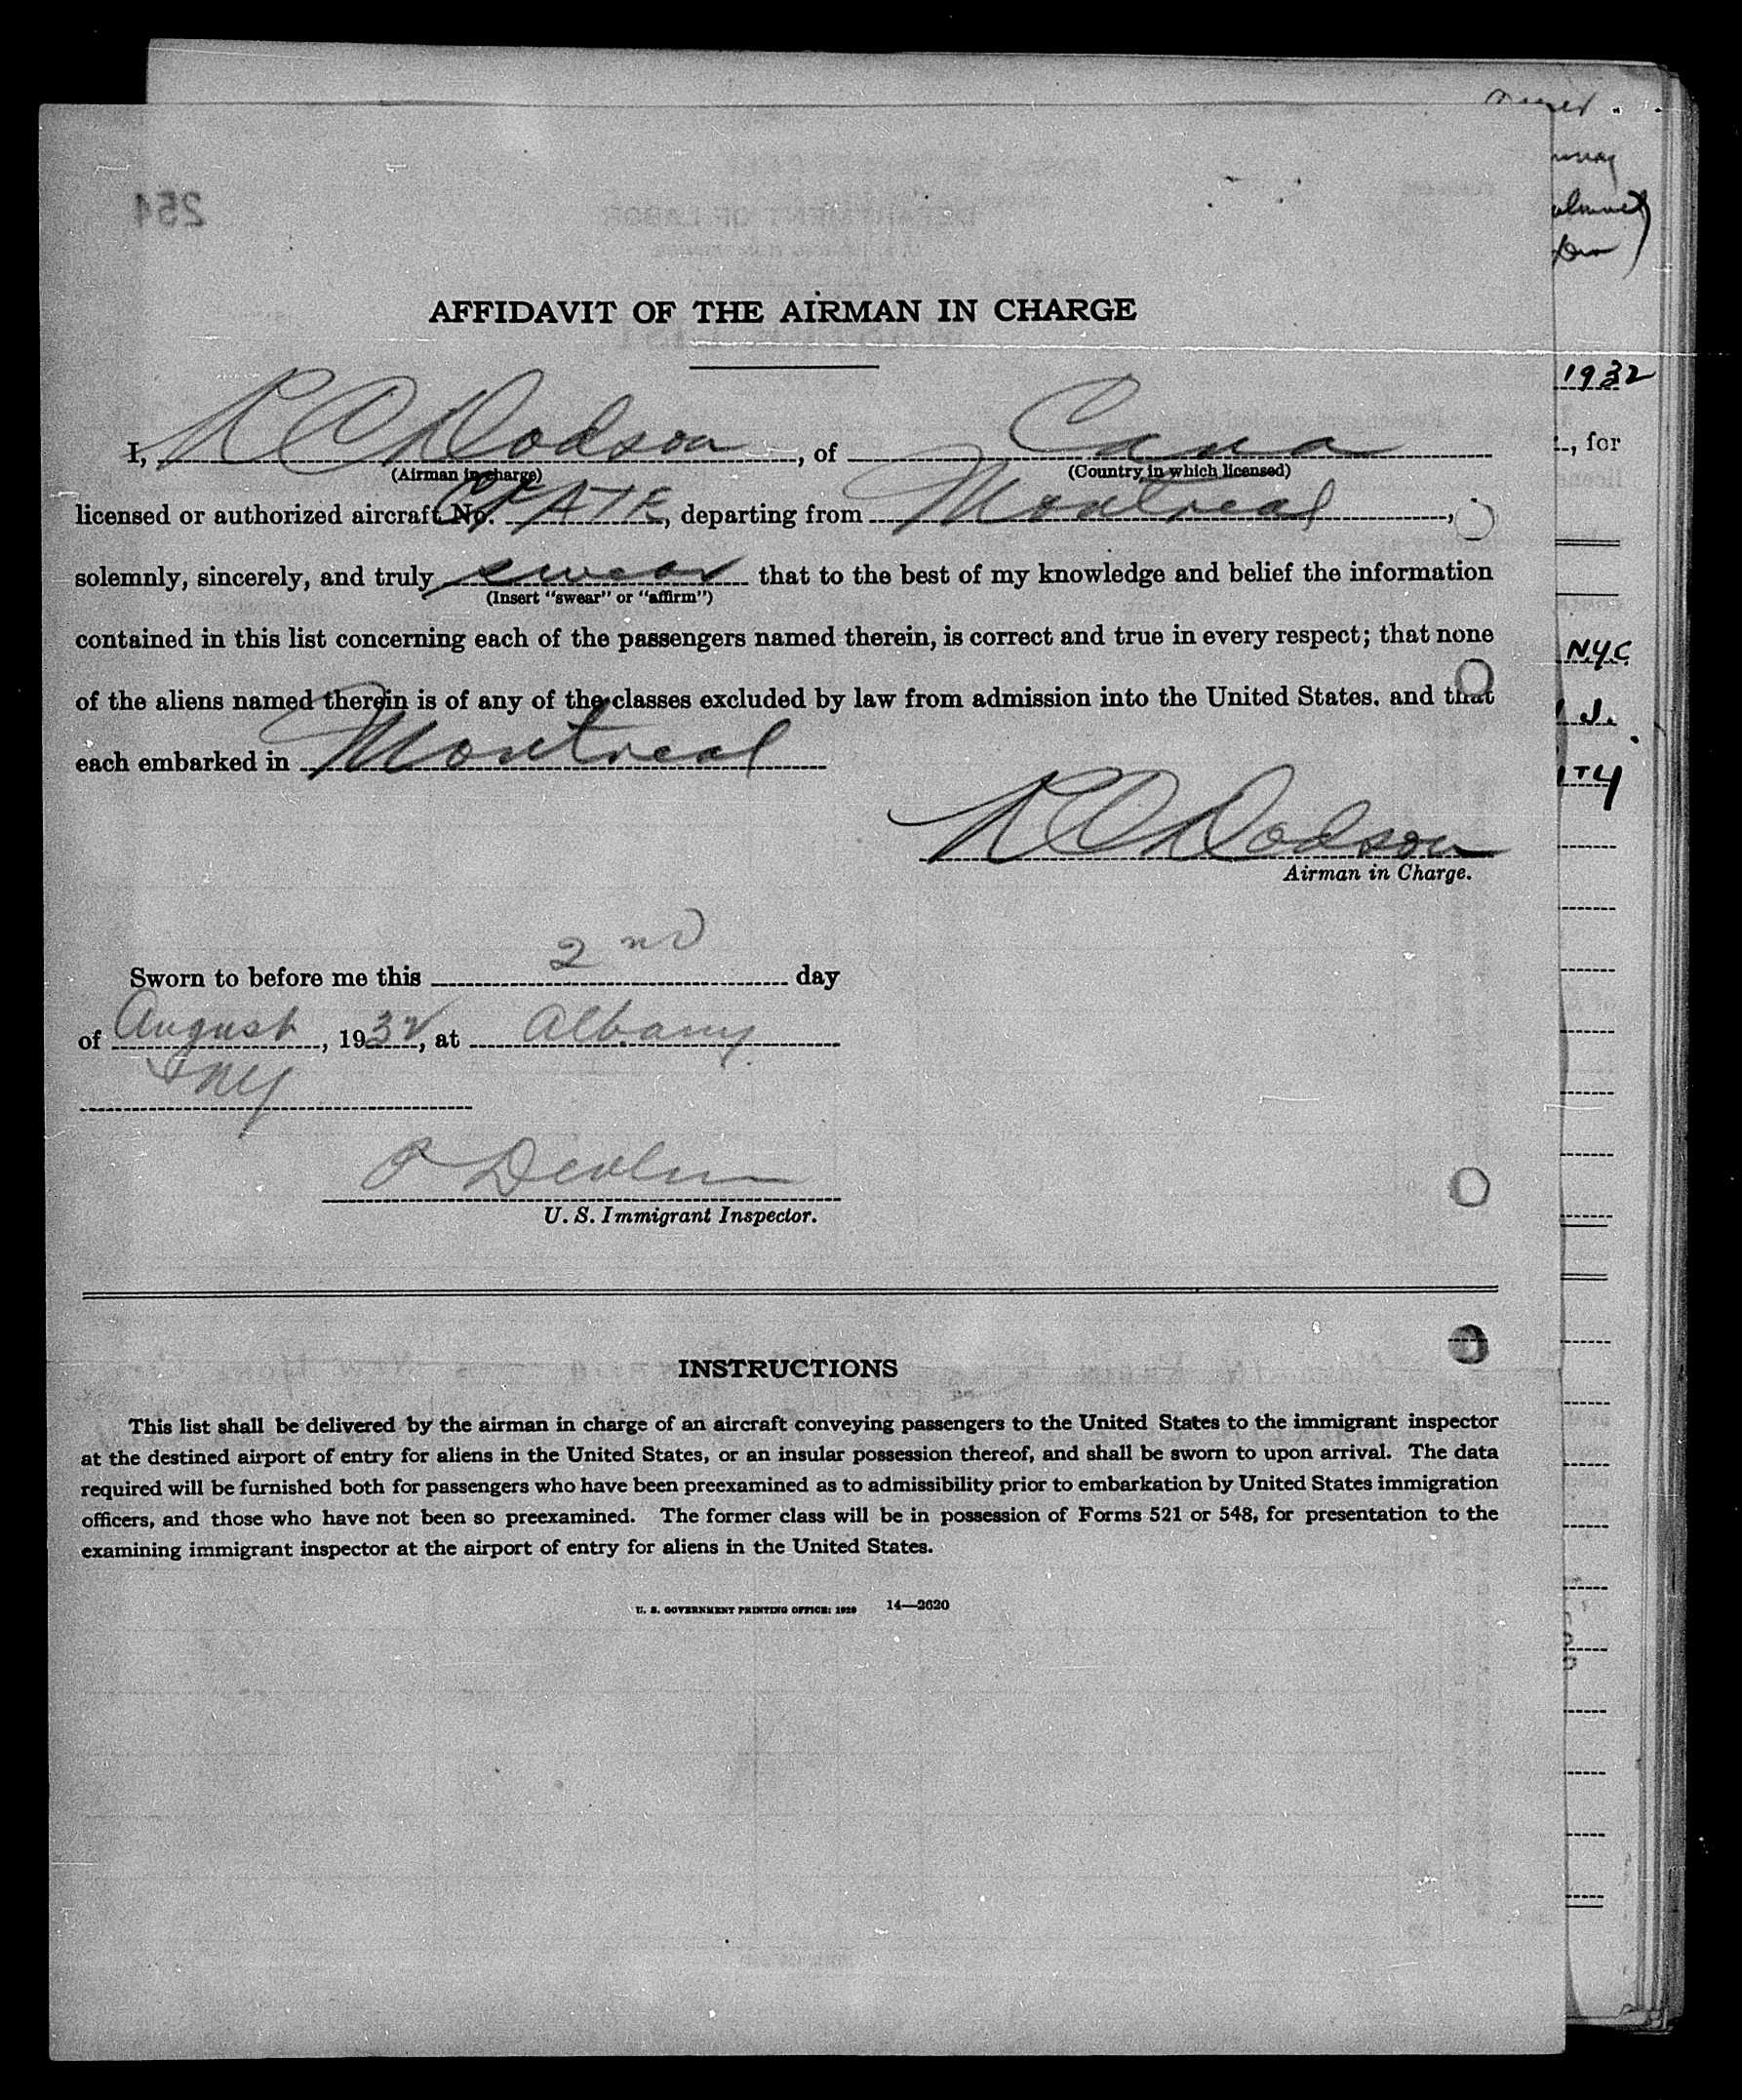 254
AFFIDAVIT OF THE AIRMAN IN CHARGE
I, R C Dodson, of Cana
(Airman in charge) (Country in which licensed)
licensed or authorized aircraft No. departing from Montreal,
solemnly, sincerely, and truly swear that to the best of my knowledge and belief the information
(Insert "swear" or "affirm")
contained in this list concerning each of the passengers named therein, is correct and true in every respect; that none
of the aliens named therein is of any of the classes excluded by law from admission into the United States. and that
each embarked in Montreal
R C Dodson
Airman in Charge.
Sworn to before me this 2nd day
of August, 1932, at Albany
NY
P Devlin
U. S. Immigrant Inspector.
INSTRUCTIONS
This list shall be delivered by the airman in charge of an aircraft conveying passengers to the United States to the immigrant inspector
at the destined airport of entry for aliens in the United States, or an insular possession thereof, and shall be sworn to upon arrival. The data
required will be furnished both for passengers who have been preexamined as to admissibility prior to embarkation by United States immigration
officers, and those who have not been so preexamined. The former class will be in possession of Forms 521 or 548, for presentation to the
examining immigrant inspector at the airport of entry for aliens in the United States.
U. S. GOVERNMENT PRINTING OFFICE: 1929 14—3620
1932
, for
NYC
J.